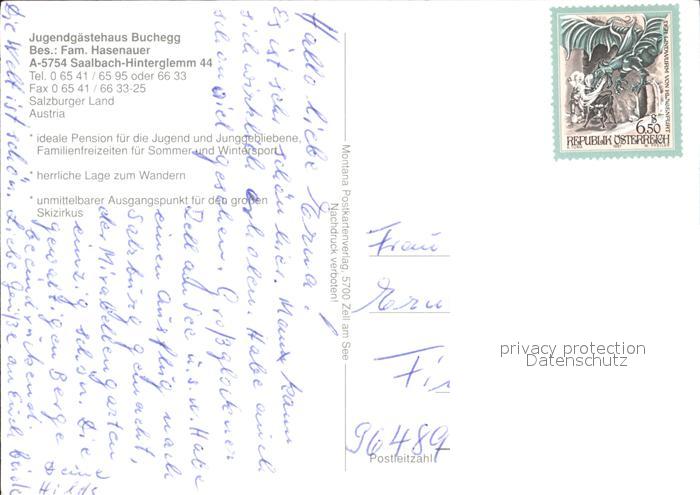 Jugendgästehaus Buchegg
Bes.: Fam. Hasenauer
A-5754 Saalbach-Hinterglemm 44
Tel. 0 65 41 / 65 95 oder 66 33
Fax 0 65 41 / 66 33-25
Salzburger Land
Austria
* ideale Pension für die Jugend und Junggebliebene,
Familienfreizeiten für Sommer und Wintersport
* herrliche Lage zum Wandern
* unmittelbarer Ausgangspunkt für den großen
Skizirkus
Hallo liebe Erna!
Es ist sehr schön hier. Mann kann
sich wirklich erholen. Habe auch
schon viel gesehen. Großglockner
Zell am See u.s.w. Habe
einen Ausflug nach
Salzburg gemacht,
der Mirabellengarten
einzig schön. Die
gewaltigen Berge
beeindruckend.
Die Welt ist schön. Liebe Grüße an Euch beide
Deine
Hilde
Montana Postkartenverlag, 5700 Zell am See
Nachdruck verboten!
DER LINDWURM VON KLAGENFURT
S
6.50
REPUBLIK ÖSTERREICH
1997
Frau
96489
Postleitzahl
privacy protection
Datenschutz